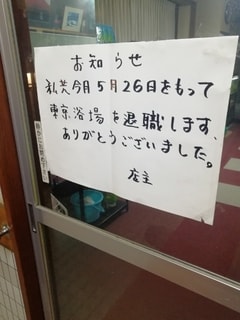 お知らせ
私共今月5月26日をもって
東京浴場を退職します、
ありがとうございました。
店主